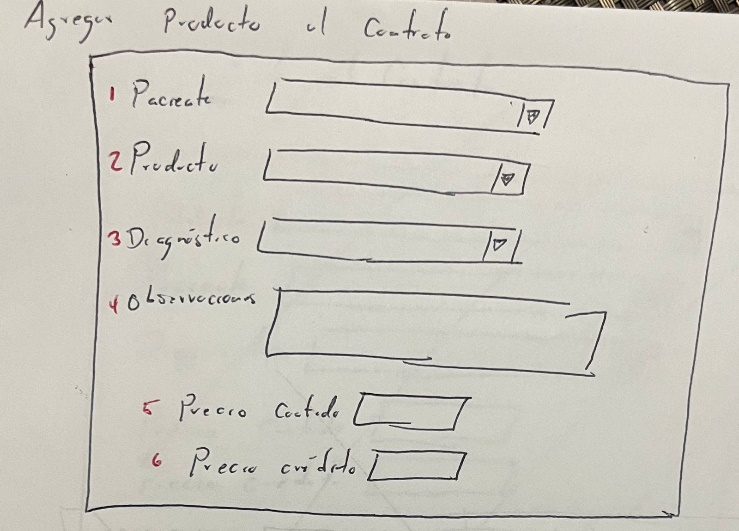 Agregar Producto al Contrato
1 Paciente
2 Producto
3 Diagnóstico
4 Observaciones
5 Precio Contado
6 Precio crédito